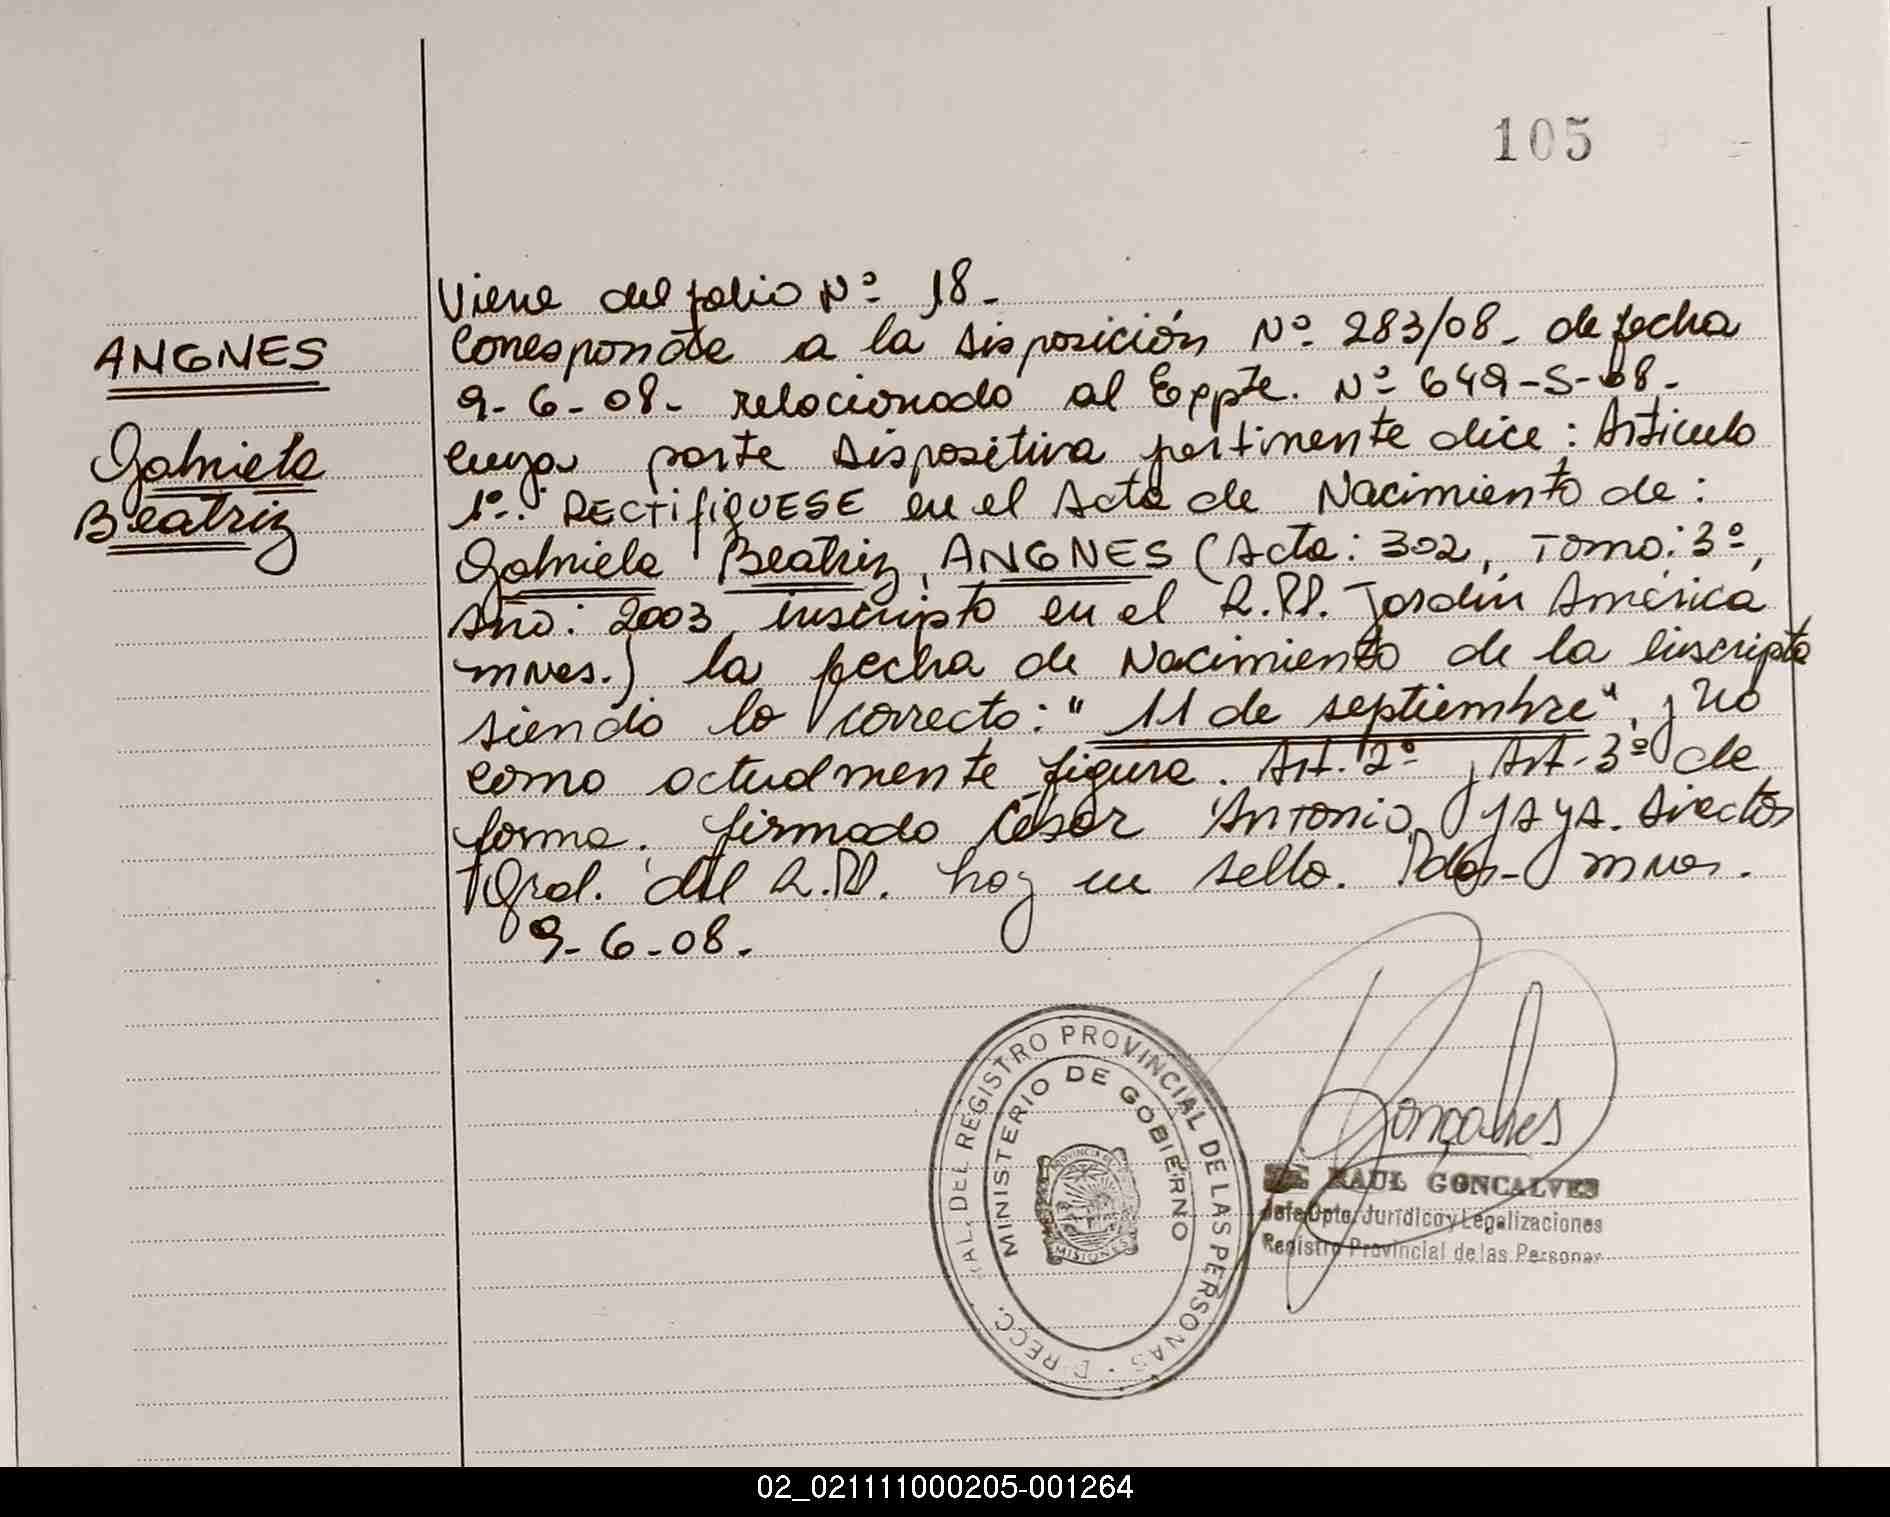 105
Viene del folio Nº 18-
ANGNES
Corresponde a la Disposición Nº 283/08- de fecha
9-6-08- relacionado al Expte. Nº 649-S-08-
Gabriela
cuya parte Dispositiva pertinente dice: Articulo
Beatriz
1º: RECTIFIQUESE en el Acta de Nacimiento de:
Gabriela Beatriz, ANGNES (Acta: 302, Tomo: 3º,
Año: 2003, inscripto en el R.PP. Jardín América
mnes.) la fecha de Nacimiento de la inscripta
siendo lo correcto: "11 de septiembre", y no
como actualmente figura. Art. 2º y Art. 3º de
forma. firmado César Antonio YAYA. Director
Gral. del R.PP. hay un sello. Pdas- mnes.
9-6-08-
DIRECC. GRAL. DEL REGISTRO PROVINCIAL DE LAS PERSONAS
MINISTERIO DE GOBIERNO
PROVINCIA DE
MISIONES
Goncalves
RAUL GONCALVES
Jefe Dpto. Jurídico y Legalizaciones
Registro Provincial de las Personas
02_021111000205-001264